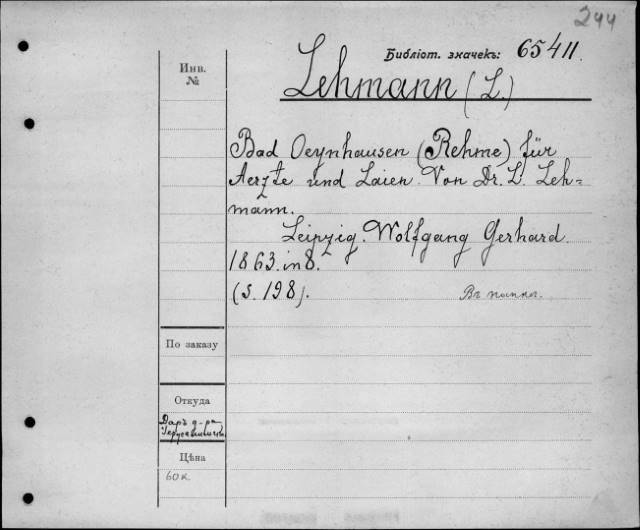 244
Библіот. значекъ: 65411.
Инв.
№
Lehmann (L.)
Bad Oeynhausen (Rehme) für
Aerzte und Laien. Von Dr. L. Leh=
mann.
Leipzig. Wolfgang Gerhard.
1863. in 8.
(S. 198).
Въ папкѣ.
По заказу
Откуда
Даръ д-ра
Цѣна
60 к.